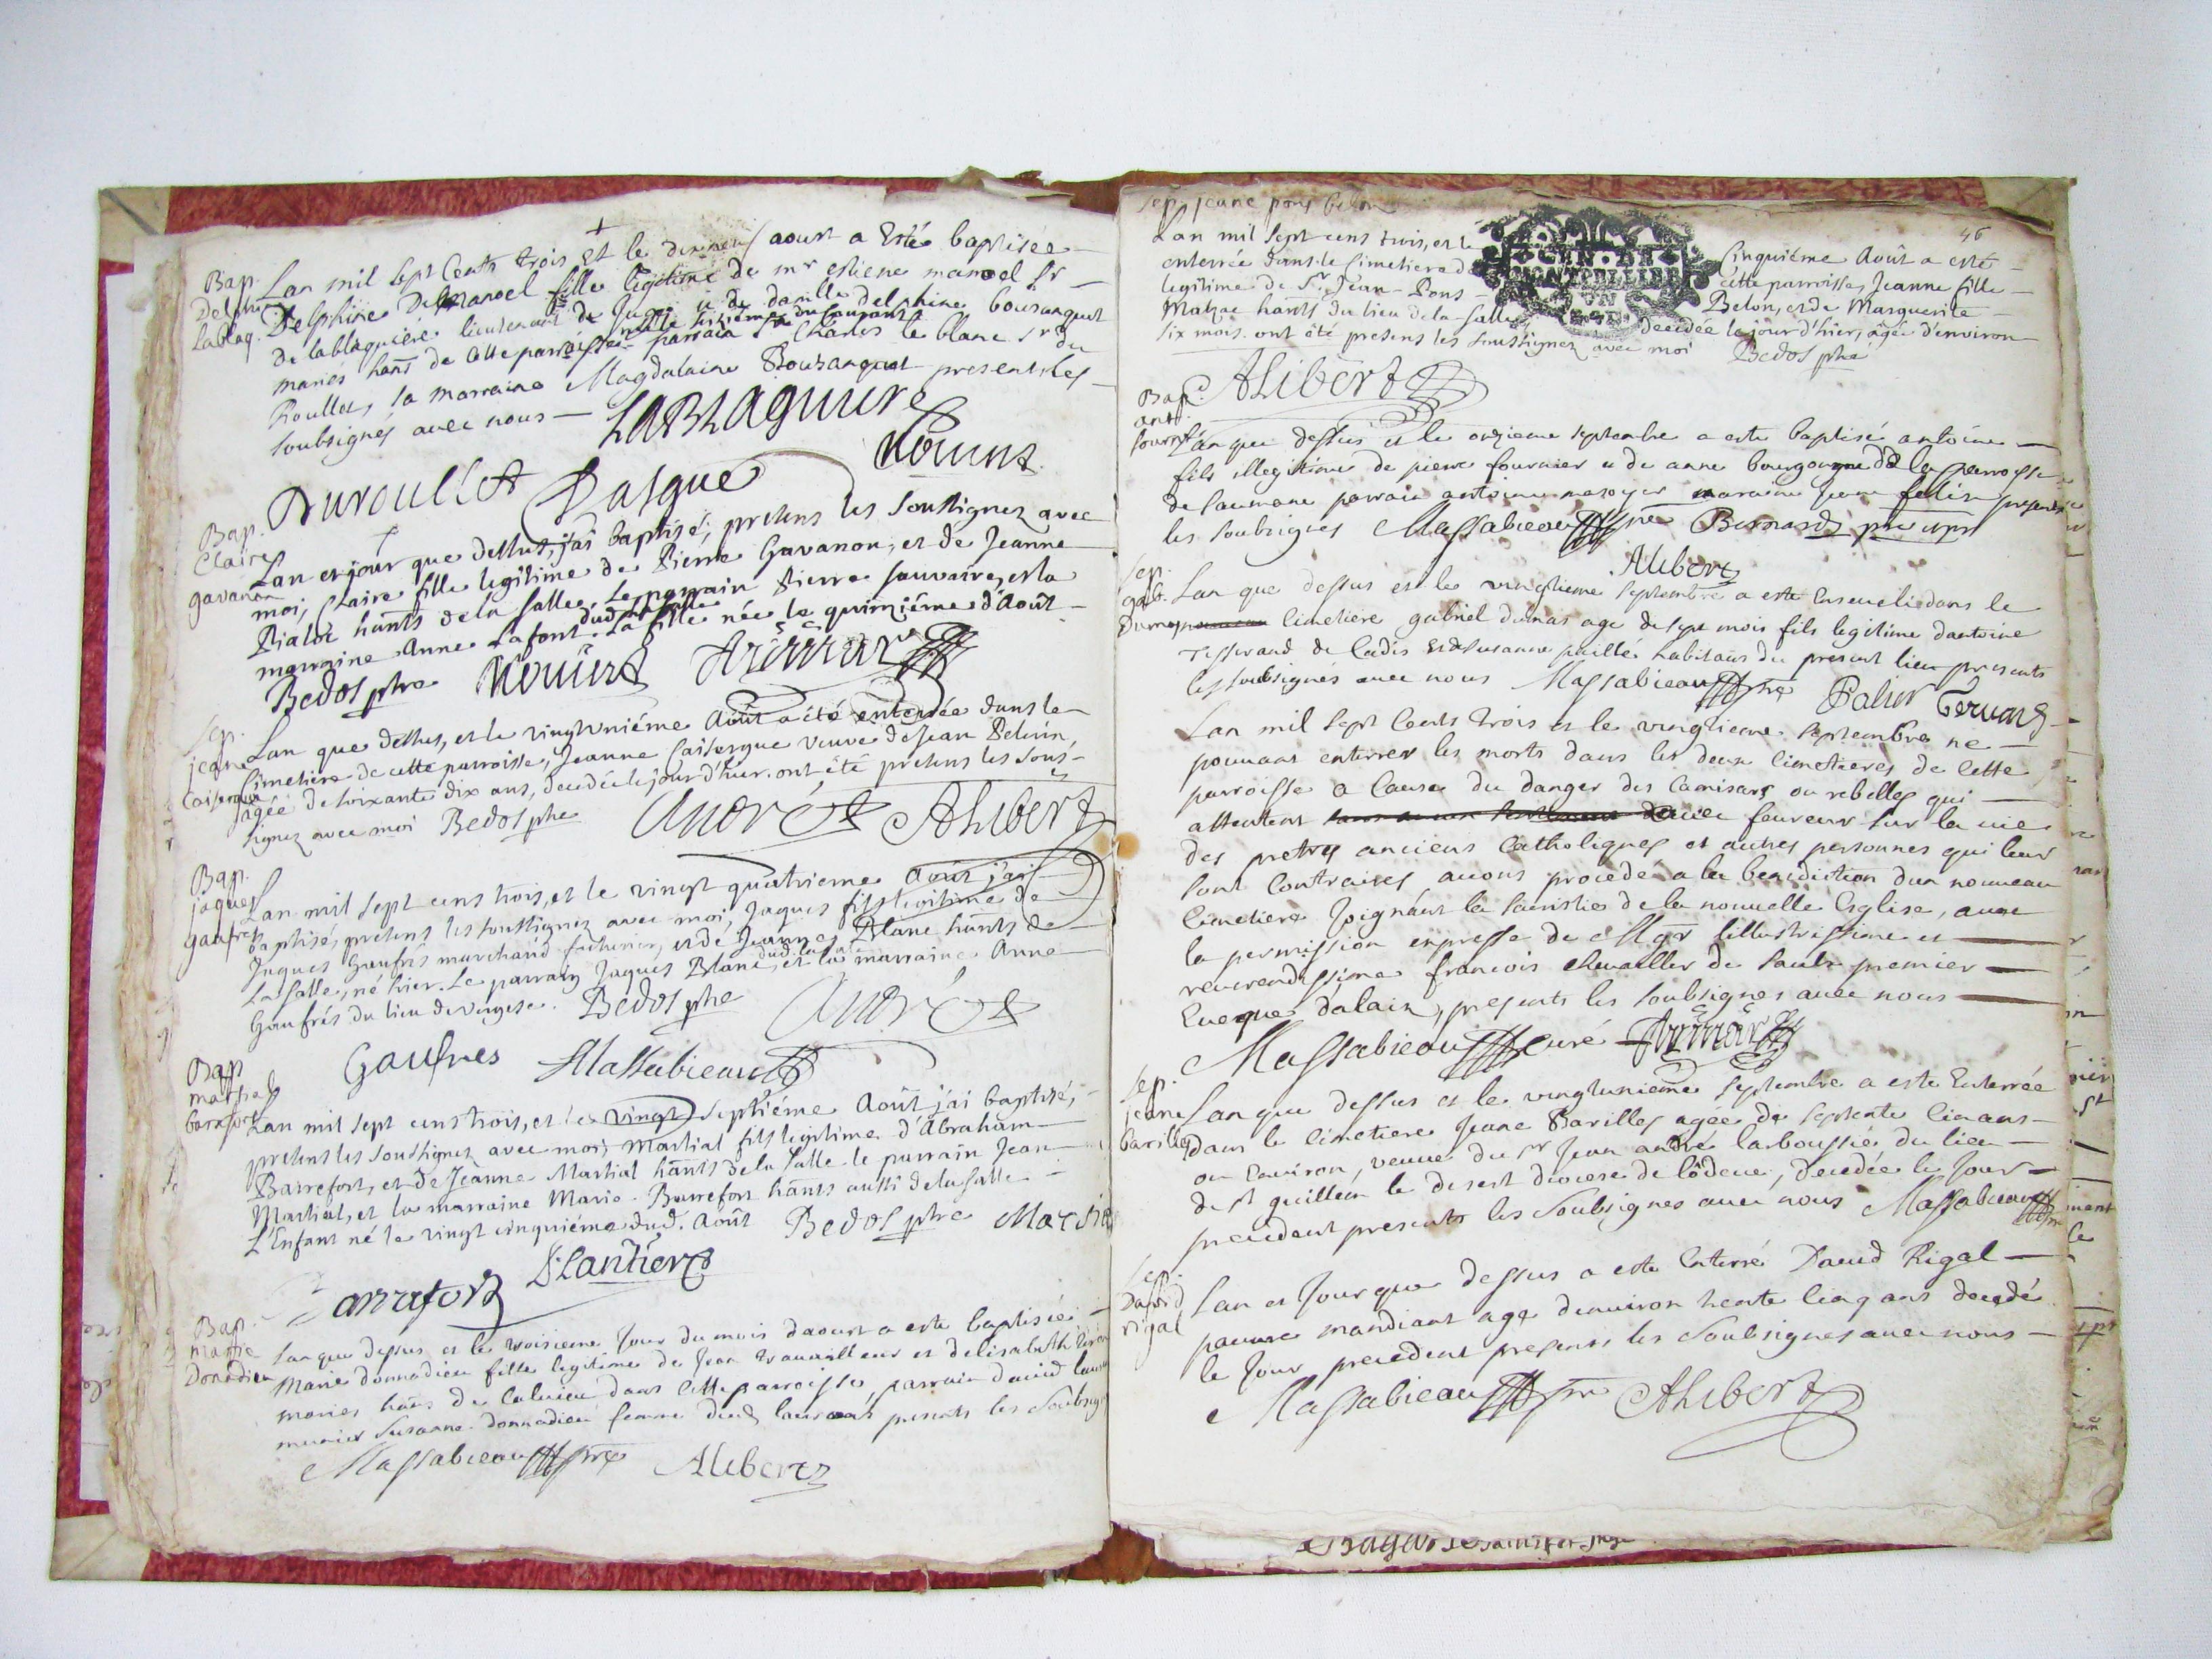 Bap.
Delphi
Lablaq.
Lan mil Sept Cents trois et le dixneuf aoust a Esté baptisée
Delphine De Manoel fille legitime de mr estiene manoel sr
de lablaquiere lieutenant de Juge et de danlle delphine bousanquet
née le seizième du Courant
mariés hans de cette parroisse parrain Sr Charles le blanc Sr du
Roullet, la marraine Magdalaine Bousanquet presents les
soubsignés avec nous
LABLAQUIERE
Duroullet
Bap.
Claire
gavanon
Lan et jour que dessus, j'ai baptisé, presens les soussignez avec
moi, Claire fille legitime de Pierre Gavanon, et de Jeanne
hants de la Salle, Le parrain Pierre sauvaire, et la
dud. la salle
marraine Anne Lafont. La fille née le quinziéme d'Août
Bedos ptre
Sep.
jeane
Caiserque
Lan que dessus, et le vingtuniéme Août a été enterrée dans le
Cimetiere de cette parroisse, Jeanne Caiserque veuve de Jean
agée de soixante dix ans, decedée le jour d'hier. ont été presens les sous-
signez avec moi Bedos ptre André Alibert
Bap.
jaques
gaufres
Lan mil sept cens trois, et le vingt quatrieme Août j'ai
baptisé, presens les soussignez avec moi, Jaques fils legitime de
Jaques Gaufrés marchand facturier, et de Jeanne Blanc hants de
dud. la salle
La salle, né hier. Le parrain Jaques Blanc, et la marraine Anne
Gaufrés du lieu de vergese. Bedos ptre André
Gaufres Massabieau
Bap
martial
barafort
Lan mil sept cens trois, et le vingt septiéme Août j'ai baptisé,
presens les soussignez avec moi, Martial fils legitime d'Abraham
Barrefort, et de Jeanne Martial hants de la Salle le parrain Jean
Martial, et la marraine Marie Barrefort hants aussi de la salle
L'Enfant né le vingt cinquiéme dud. Août Bedos ptre
Barrafort
Bap.
marie
Donadieu
Lan que dessus et le troisieme Jour du mois daoust a este baptisée
Marie donnadieu fille legitime de Jean travailleur et delisabeth
maries hans de dans cette parroisse, parrain david
Susanne donnadieu femme dud presents les Soubsig
Massabieau ptre Alibert
Sep. jeane pons belon
46
Lan mil sept cens trois, et le Cinquiéme Août a esté
enterrée dans le Cimetiere de cette parroisse, Jeanne fille
legitime de Sr Jean-Pons Belon, et de Marguerite
hants du lieu de la salle, decedée le jour d'hier, âgée d'environ
six mois. ont été presens les soussignez avec moi Bedos ptre
GEN. DE
MONTPELLIER
UN
Alibert
Bap.
ant.
fournié
Lan que dessus et le onzieme septembre a este baptisé antoine
fils illegitime de pierre fournier et de anne bourgougne de la parroisse
de saumane parrain antoine maraine Jeane felix presents
les soubsignes Massabieau ptre Bernard ptre
Alibert
Sep.
gab.
Dumas
Lan que dessus et le vingtieme septembre a este enseveli dans le
cimetiere gabriel dumas age de sept mois fils legitime dantoine
Tisserand de Cadis et de susanne habitans du present lieu presents
les soubsignés avec nous Massabieau ptre
Lan mil sept Cents trois et le vingtieme septembre ne
pouvant enterrer les morts dans les deux cimetieres de Cette
parroisse a Cause du danger des Camisars ou rebelles qui
attentent avec feureur sur la vie
des pretres anciens Catholiques et autres personnes qui leur
sont Contraires avons procedé a la benediction dun nouveau
Cimetiere Joignant la sacristie de la nouvelle Eglise, avec
la permission expresse de Mgr lillustrissime et
reverendissime francois chevallier de saulx premier
Eveque dalais, presents les soubsignes avec nous
Massabieau curé
Sep.
jeane
barilles
Lan que dessus et le vingtunieme septembre a este Enterrée
dans le cimetiere Jeane Barilles agée de septente Cinans
ou Environ, veuve du sr Jean andré larboussié du lieu
de st guillem le desert diocese de lôdeve, decedée le Jour
precedent presents les Soubsignes avec nous Massabieau ptre
Sep.
David
rigal
Lan et Jour que dessus a este Enterré David Rigal
pauvre mandiant age denviron trente Cinq ans decedé
le Jour precedent presents les Soubsignes avec nous
Massabieau ptre Alibert